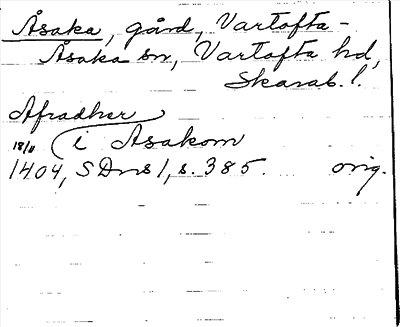 Åsaka, gård, Vartofta-
Åsaka sn, Vartofta hd,
Skarab. l.
Afradher
i Asakom
18/11
1404, SDns 1, s. 385. orig.